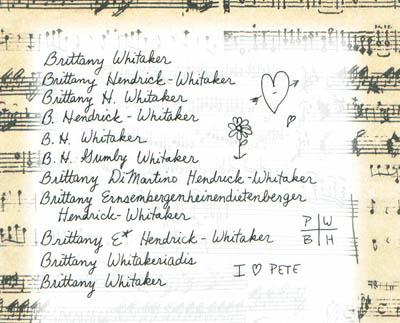 Brittany Whitaker
Brittany Hendrick-Whitaker
Brittany H. Whitaker
B. Hendrick - Whitaker
B. H. Whitaker
B. H. Gumby Whitaker
Brittany DiMartino Hendrick-Whitaker
Brittany Ernsembergenheinendietenberger
Hendrick-Whitaker
Brittany E* Hendrick - Whitaker
Brittany Whitakeriadis
Brittany Whitaker
P W
B H
I ♡ PETE